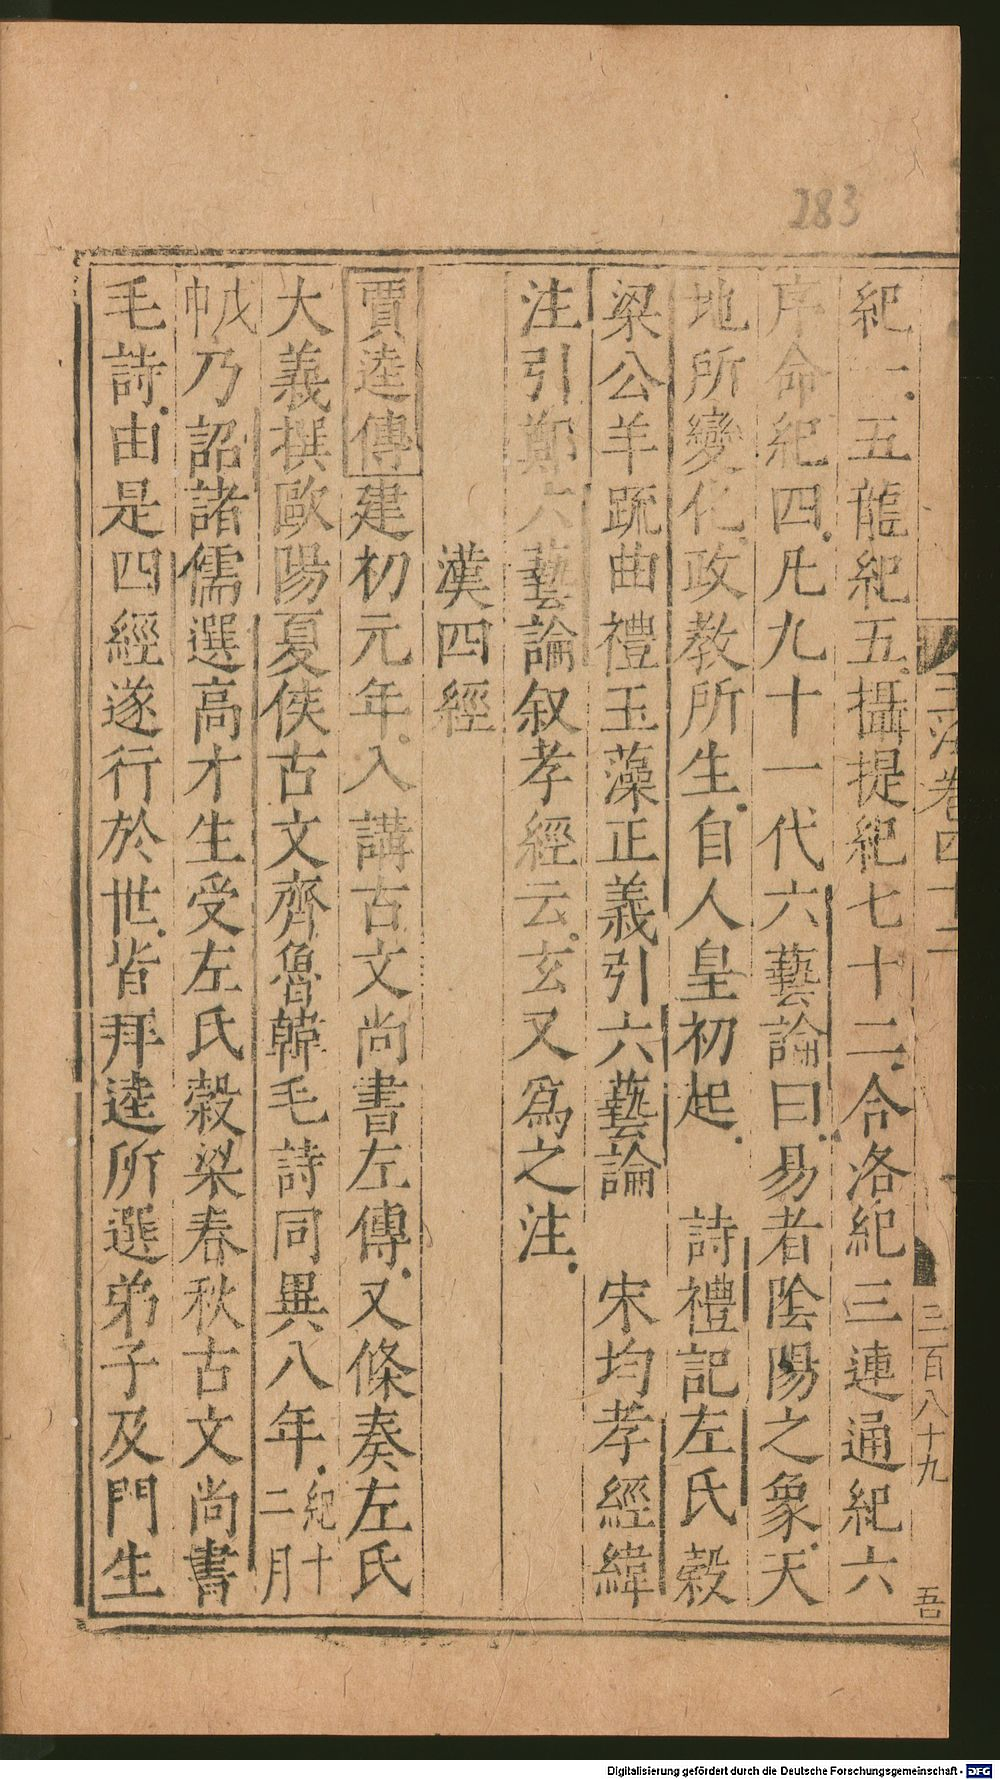 283
玉海卷四十二
三百八十九
吾
紀一.五龍紀五.攝提紀七十二.合洛紀三連通紀六
序命紀四.凡九十一代六藝論曰.易者陰陽之象.天
地所變化.政教所生.自人皇初起. 詩禮記左氏穀
梁公羊疏曲禮玉藻正義引六藝論 宋均孝經緯
注引鄭六藝論叙孝經云.玄又爲之注.
漢四經
賈逵傳建初元年.入講古文尚書左傳.又條奏左氏
大義撰歐陽夏侯古文齊魯韓毛詩同異八年.紀十二月
帔乃詔諸儒選高才生受左氏穀梁春秋古文尚書
毛詩.由是四經遂行於世.皆拜逵所選弟子及門生
Digitalisierung gefördert durch die Deutsche Forschungsgemeinschaft - DFG